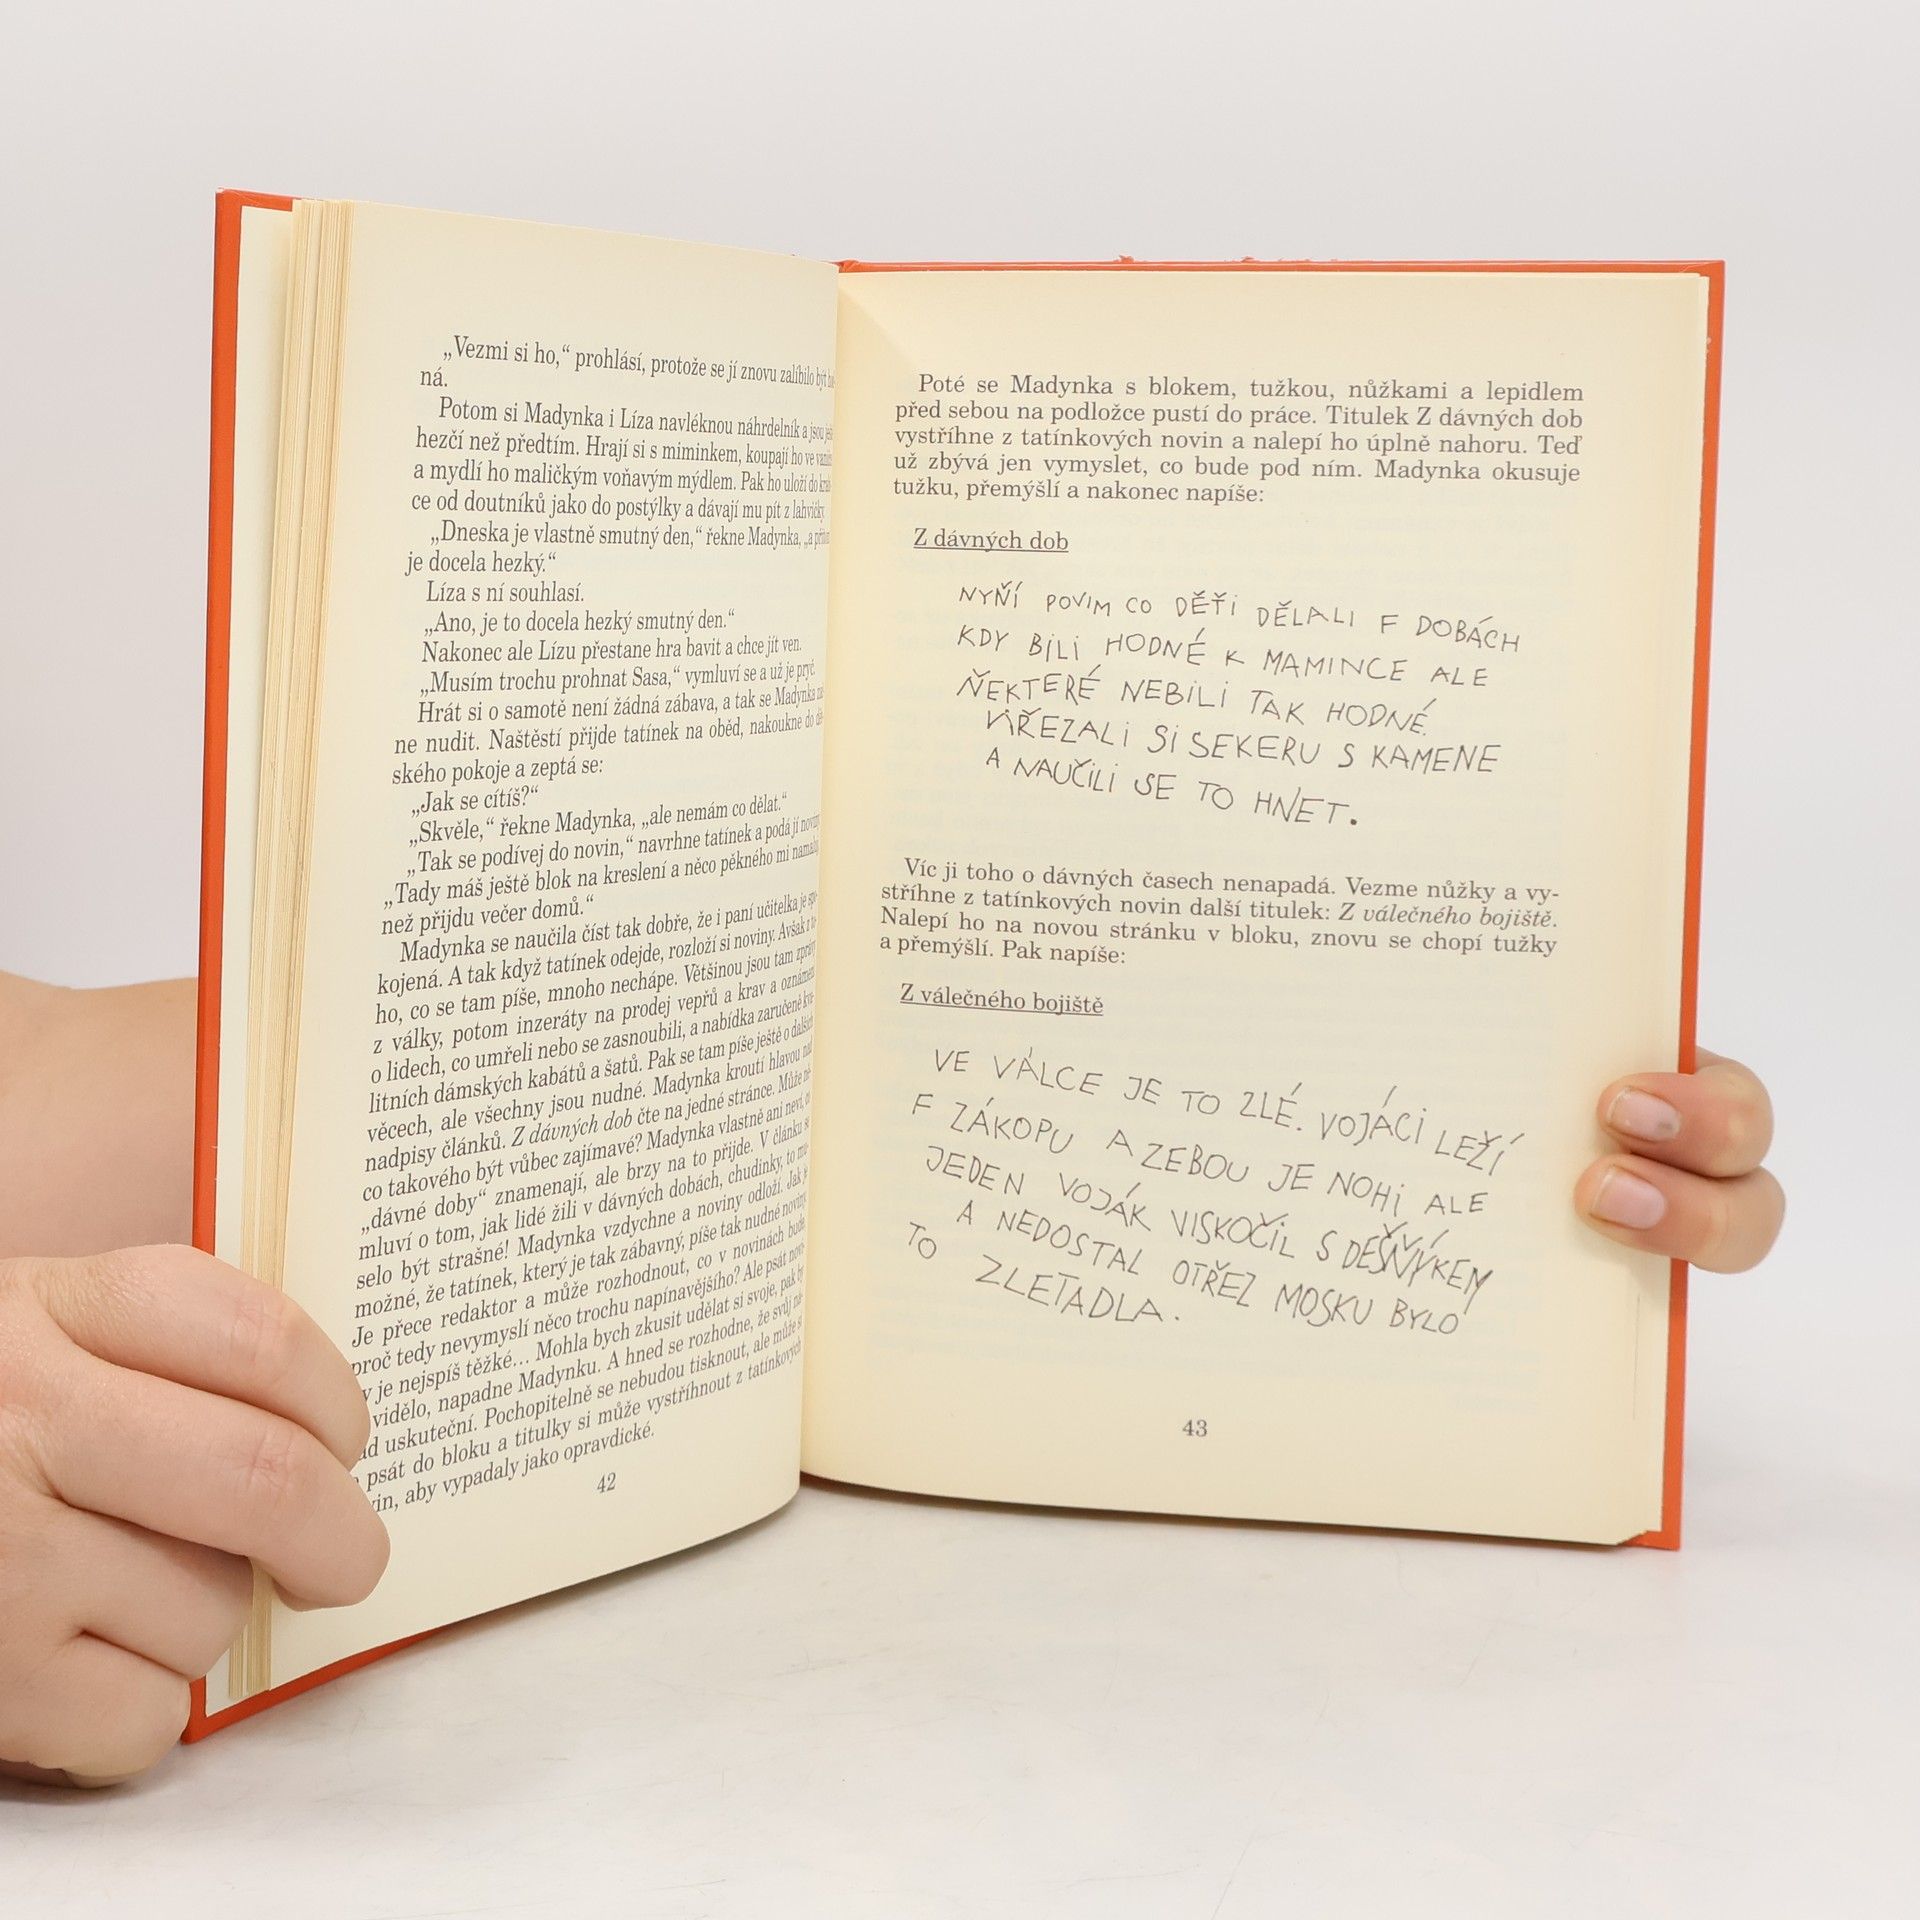 „Vezmi si ho,“ prohlásí, protože se jí znovu zalíbilo být
ná.
Potom si Madynka i Líza navléknou náhrdelník a jsou
hezčí než předtím. Hrají si s miminkem, koupají ho ve
a mydlí ho maličkým voňavým mýdlem. Pak ho uloží do
ce od doutníků jako do postýlky a dávají mu pít z lahvičky
„Dneska je vlastně smutný den,“ řekne Madynka, „a
je docela hezký.“
Líza s ní souhlasí.
„Ano, je to docela hezký smutný den.“
Nakonec ale Lízu přestane hra bavit a chce jít ven.
„Musím trochu prohnat Sasa,“ vymluví se a už je pryč.
Hrát si o samotě není žádná zábava, a tak se Madynka
ne nudit. Naštěstí přijde tatínek na oběd, nakoukne do
ského pokoje a zeptá se:
„Jak se cítíš?“
„Skvěle,“ řekne Madynka, „ale nemám co dělat.“
„Tak se podívej do novin,“ navrhne tatínek a podá jí noviny
„Tady máš ještě blok na kreslení a něco pěkného mi namaluj
než přijdu večer domů.“
Madynka se naučila číst tak dobře, že i paní učitelka je spo-
kojená. A tak když tatínek odejde, rozloží si noviny. Avšak z to-
ho, co se tam píše, mnoho nechápe. Většinou jsou tam zprávy
z války, potom inzeráty na prodej vepřů a krav a oznámení
o lidech, co umřeli nebo se zasnoubili, a nabídka zaručeně kva-
litních dámských kabátů a šatů. Pak se tam píše ještě o dalších
věcech, ale všechny jsou nudné. Madynka kroutí hlavou nad
nadpisy článků. Z dávných dob čte na jedné stránce. Může
co takového být vůbec zajímavé? Madynka vlastně ani neví, co
„dávné doby“ znamenají, ale brzy na to přijde. V článku se
mluví o tom, jak lidé žili v dávných dobách, chudinky, to mu-
selo být strašné! Madynka vzdychne a noviny odloží. Jak je
možné, že tatínek, který je tak zábavný, píše tak nudné noviny
Je přece redaktor a může rozhodnout, co v novinách bude
proč tedy nevymyslí něco trochu napínavějšího? Ale psát
je nejspíš těžké... Mohla bych zkusit udělat si svoje, pak by
vidělo, napadne Madynku. A hned se rozhodne, že svůj
uskuteční. Pochopitelně se nebudou tisknout, ale může si
psát do bloku a titulky si může vystříhnout z tatínkových
aby vypadaly jako opravdické.
42
Poté se Madynka s blokem, tužkou, nůžkami a lepidlem
před sebou na podložce pustí do práce. Titulek Z dávných dob
vystříhne z tatínkových novin a nalepí ho úplně nahoru. Teď
už zbývá jen vymyslet, co bude pod ním. Madynka okusuje
tužku, přemýšlí a nakonec napíše:
Z dávných dob
NYŇÍ POVIM CO DĚŤI DĚLALI F DOBÁCH
KDY BILI HODNÉ K MAMINCE ALE
ŇEKTERÉ NEBILI TAK HODNÉ.
VIŘEZALI SI SEKERU S KAMENE
A NAUČILI SE TO HNET.
Víc ji toho o dávných časech nenapadá. Vezme nůžky a vy-
stříhne z tatínkových novin další titulek: Z válečného bojiště.
Nalepí ho na novou stránku v bloku, znovu se chopí tužky
a přemýšlí. Pak napíše:
Z válečného bojiště
VE VÁLCE JE TO ZLÉ. VOJÁCI LEŽÍ
F ZÁKOPU A ZEBOU JE NOHI ALE
JEDEN VOJÁK VISKOČIL S DEŠŇÝKEM
A NEDOSTAL OTŘEZ MOSKU BYLO
TO ZLETADLA.
43